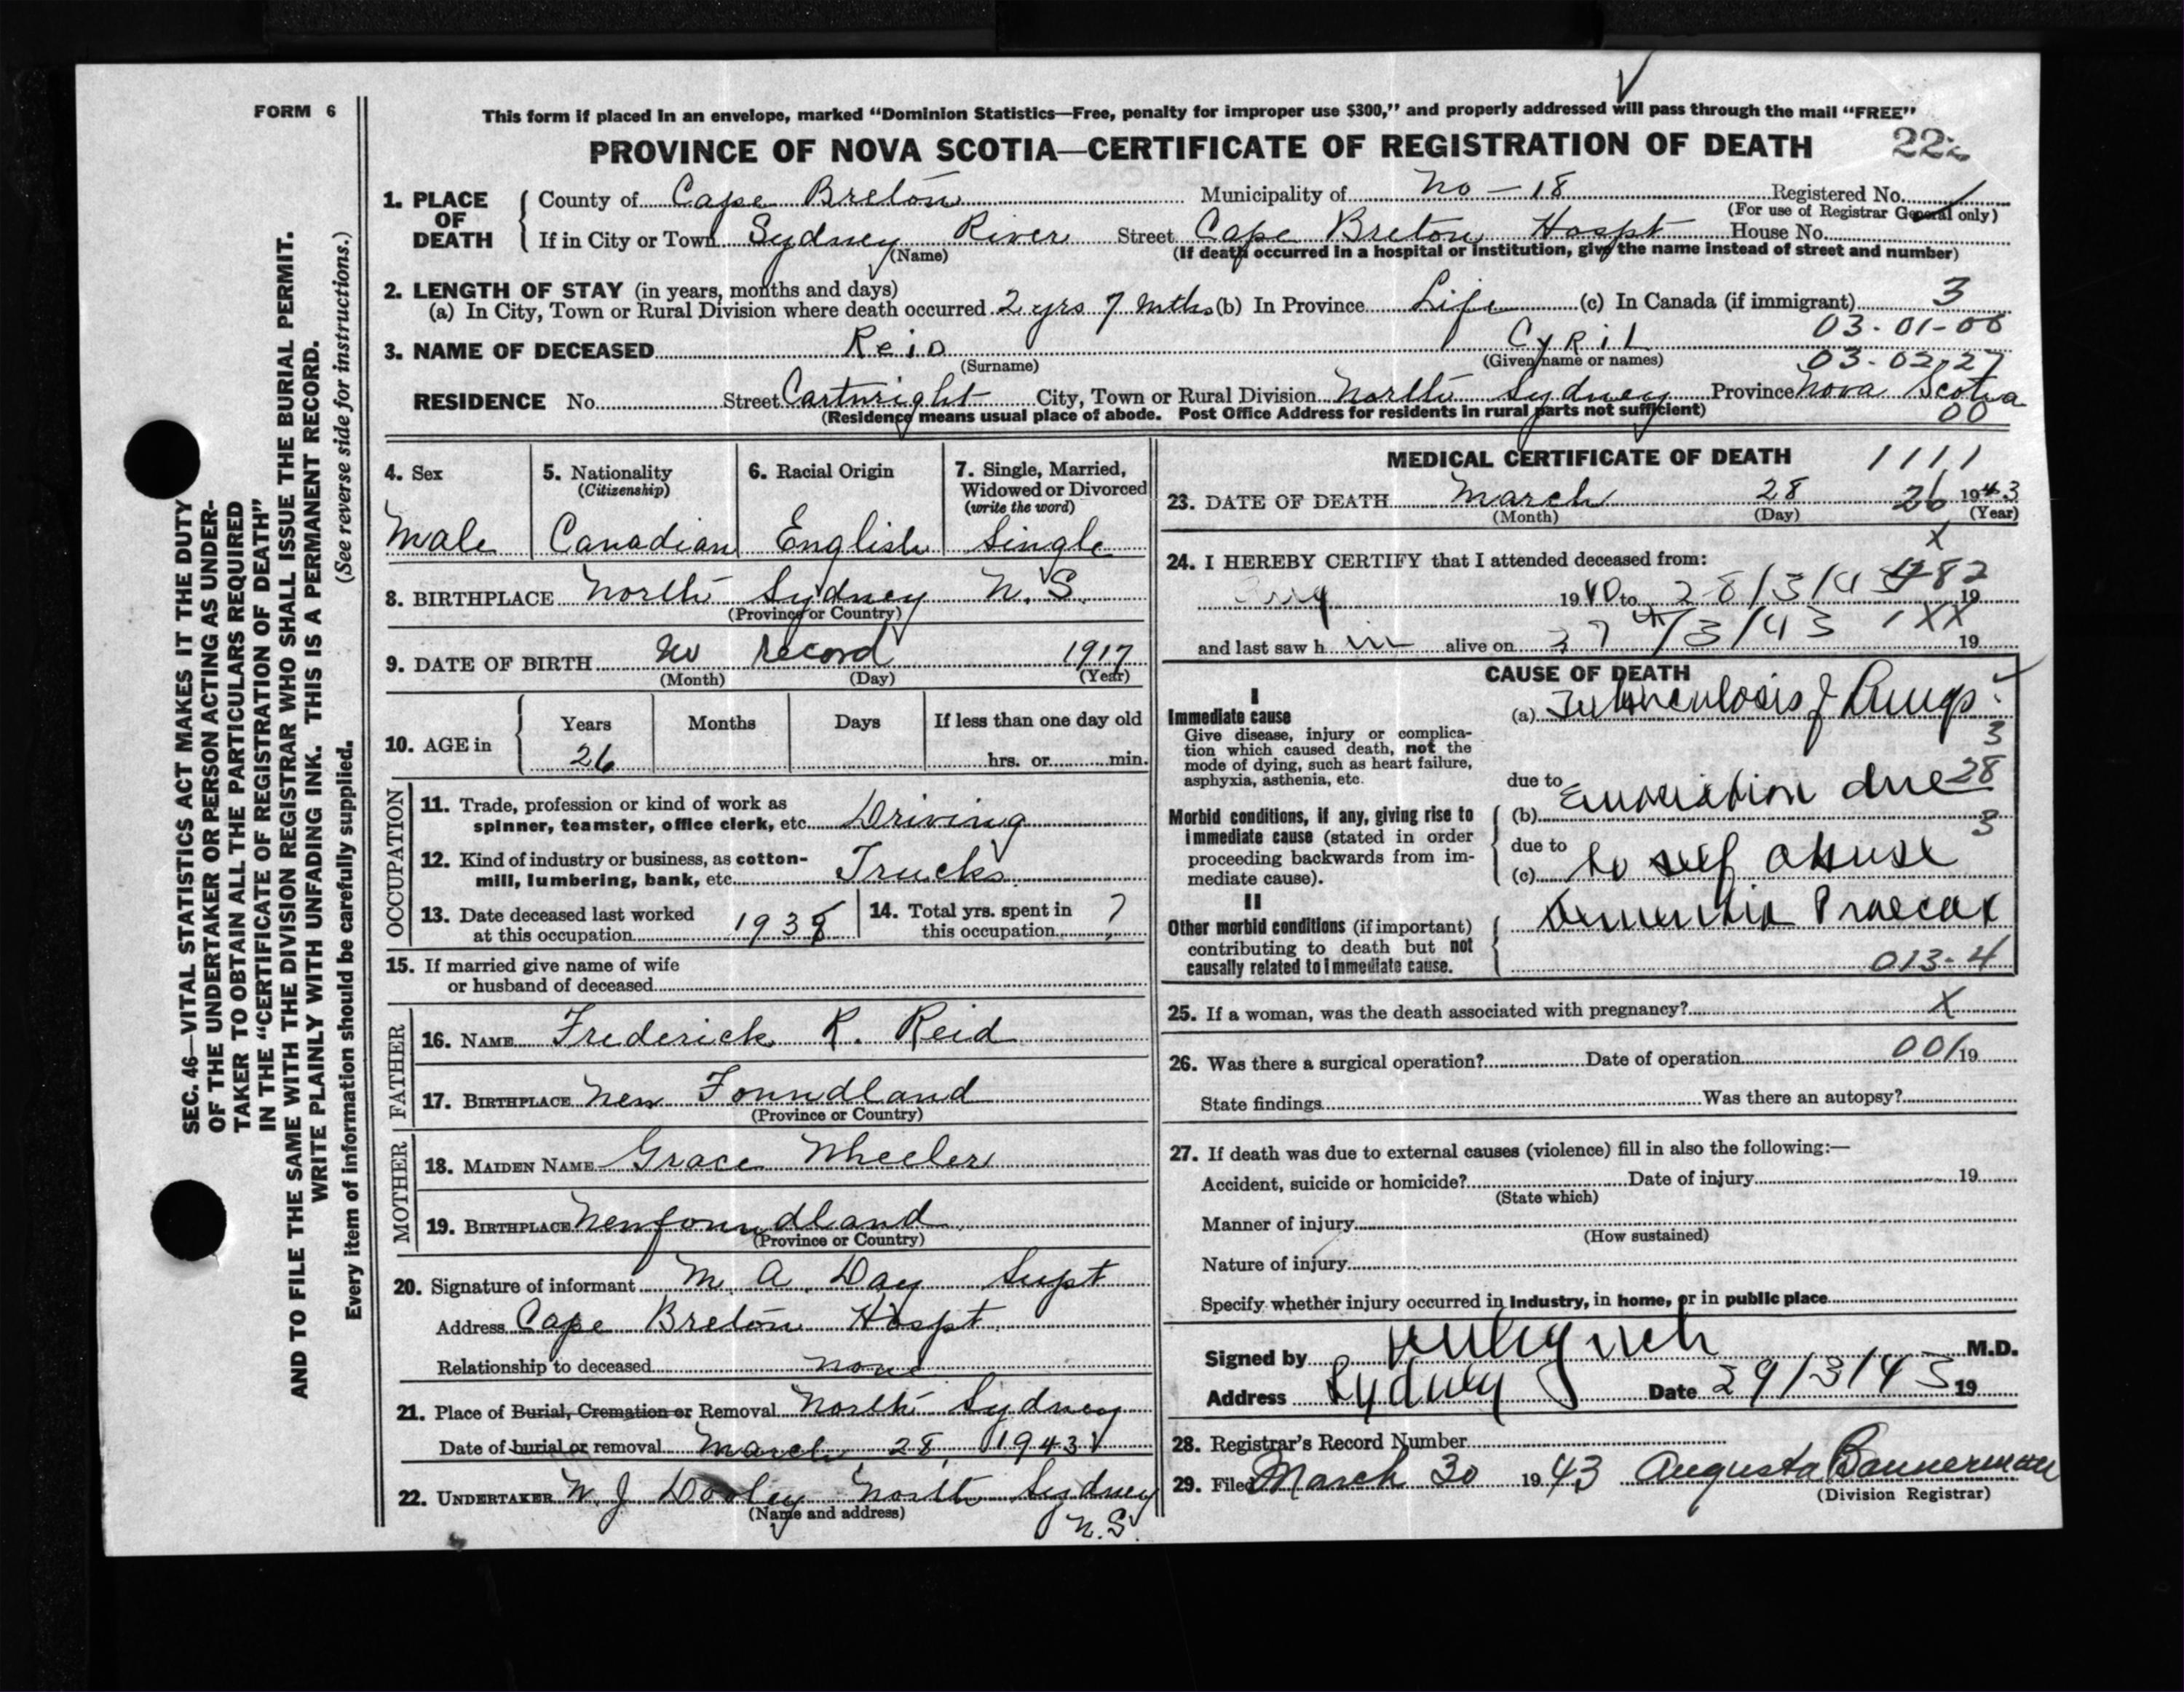 FORM 6
This form if placed in an envelope, marked “Dominion Statistics—Free, penalty for improper use $300,” and properly addressed will pass through the mail “FREE”
PROVINCE OF NOVA SCOTIA—CERTIFICATE OF REGISTRATION OF DEATH
222
1. PLACE OF DEATH
County of Cape Breton Municipality of No - 18 Registered No.
(For use of Registrar General only)
If in City or Town Sydney River Street Cape Breton Hospt House No.
(Name) (If death occurred in a hospital or institution, give the name instead of street and number)
2. LENGTH OF STAY (in years, months and days)
(a) In City, Town or Rural Division where death occurred 2 yrs 7 mths (b) In Province Life (c) In Canada (if immigrant) 3
03-01-00
3. NAME OF DECEASED Reid Cyril
(Surname) (Given name or names) 03-02-27
RESIDENCE No. Street Cartwright City, Town or Rural Division North Sydney Province Nova Scotia
(Residence means usual place of abode. Post Office Address for residents in rural parts not sufficient) 00
SEC. 46—VITAL STATISTICS ACT MAKES IT THE DUTY
OF THE UNDERTAKER OR PERSON ACTING AS UNDER-
TAKER TO OBTAIN ALL THE PARTICULARS REQUIRED
IN THE “CERTIFICATE OF REGISTRATION OF DEATH”
AND TO FILE THE SAME WITH THE DIVISION REGISTRAR WHO SHALL ISSUE THE BURIAL PERMIT.
WRITE PLAINLY WITH UNFADING INK. THIS IS A PERMANENT RECORD.
Every item of information should be carefully supplied. (See reverse side for instructions.)
4. Sex
Male
5. Nationality
(Citizenship)
Canadian
6. Racial Origin
English
7. Single, Married,
Widowed or Divorced
(write the word)
Single
8. BIRTHPLACE North Sydney N.S.
(Province or Country)
9. DATE OF BIRTH no record 1917
(Month) (Day) (Year)
10. AGE in
Years Months Days If less than one day old
26 hrs. or min.
OCCUPATION
11. Trade, profession or kind of work as
spinner, teamster, office clerk, etc. Driving
12. Kind of industry or business, as cotton-
mill, lumbering, bank, etc. Trucks
13. Date deceased last worked
at this occupation 1938
14. Total yrs. spent in
this occupation ?
15. If married give name of wife
or husband of deceased
FATHER
16. NAME Frederick R. Reid
17. BIRTHPLACE New Foundland
(Province or Country)
MOTHER
18. MAIDEN NAME Grace Wheeler
19. BIRTHPLACE Newfoundland
(Province or Country)
20. Signature of informant M. A. Day Supt
Address Cape Breton Hospt.
Relationship to deceased none
21. Place of Burial, Cremation or Removal North Sydney
Date of burial or removal March 28, 1943
22. UNDERTAKER W. J. Dooley North Sydney
(Name and address) N.S.
MEDICAL CERTIFICATE OF DEATH 1111
23. DATE OF DEATH March 28 26 1943
(Month) (Day) (Year)
X
24. I HEREBY CERTIFY that I attended deceased from:
Aug 1940 to 28/3/43 82 19
and last saw h im alive on 27th/3/43 1XX 19
CAUSE OF DEATH
I
Immediate cause
Give disease, injury or complica-
tion which caused death, not the
mode of dying, such as heart failure,
asphyxia, asthenia, etc.
(a) Tuberculosis of Lungs
3
28
3
due to
(b) Emaciation due
Morbid conditions, if any, giving rise to
immediate cause (stated in order
proceeding backwards from im-
mediate cause).
due to
(c) to self abuse
II
Other morbid conditions (if important)
contributing to death but not
causally related to immediate cause.
Dementia Praecox
013-4
25. If a woman, was the death associated with pregnancy? X
26. Was there a surgical operation? Date of operation 001 19
State findings Was there an autopsy?
27. If death was due to external causes (violence) fill in also the following:—
Accident, suicide or homicide? Date of injury 19
(State which)
Manner of injury
(How sustained)
Nature of injury
Specify whether injury occurred in industry, in home, or in public place
Signed by M.D.
Address Sydney Date 29/3/43 19
28. Registrar’s Record Number
29. Filed March 30 1943 Augusta Bannerman
(Division Registrar)